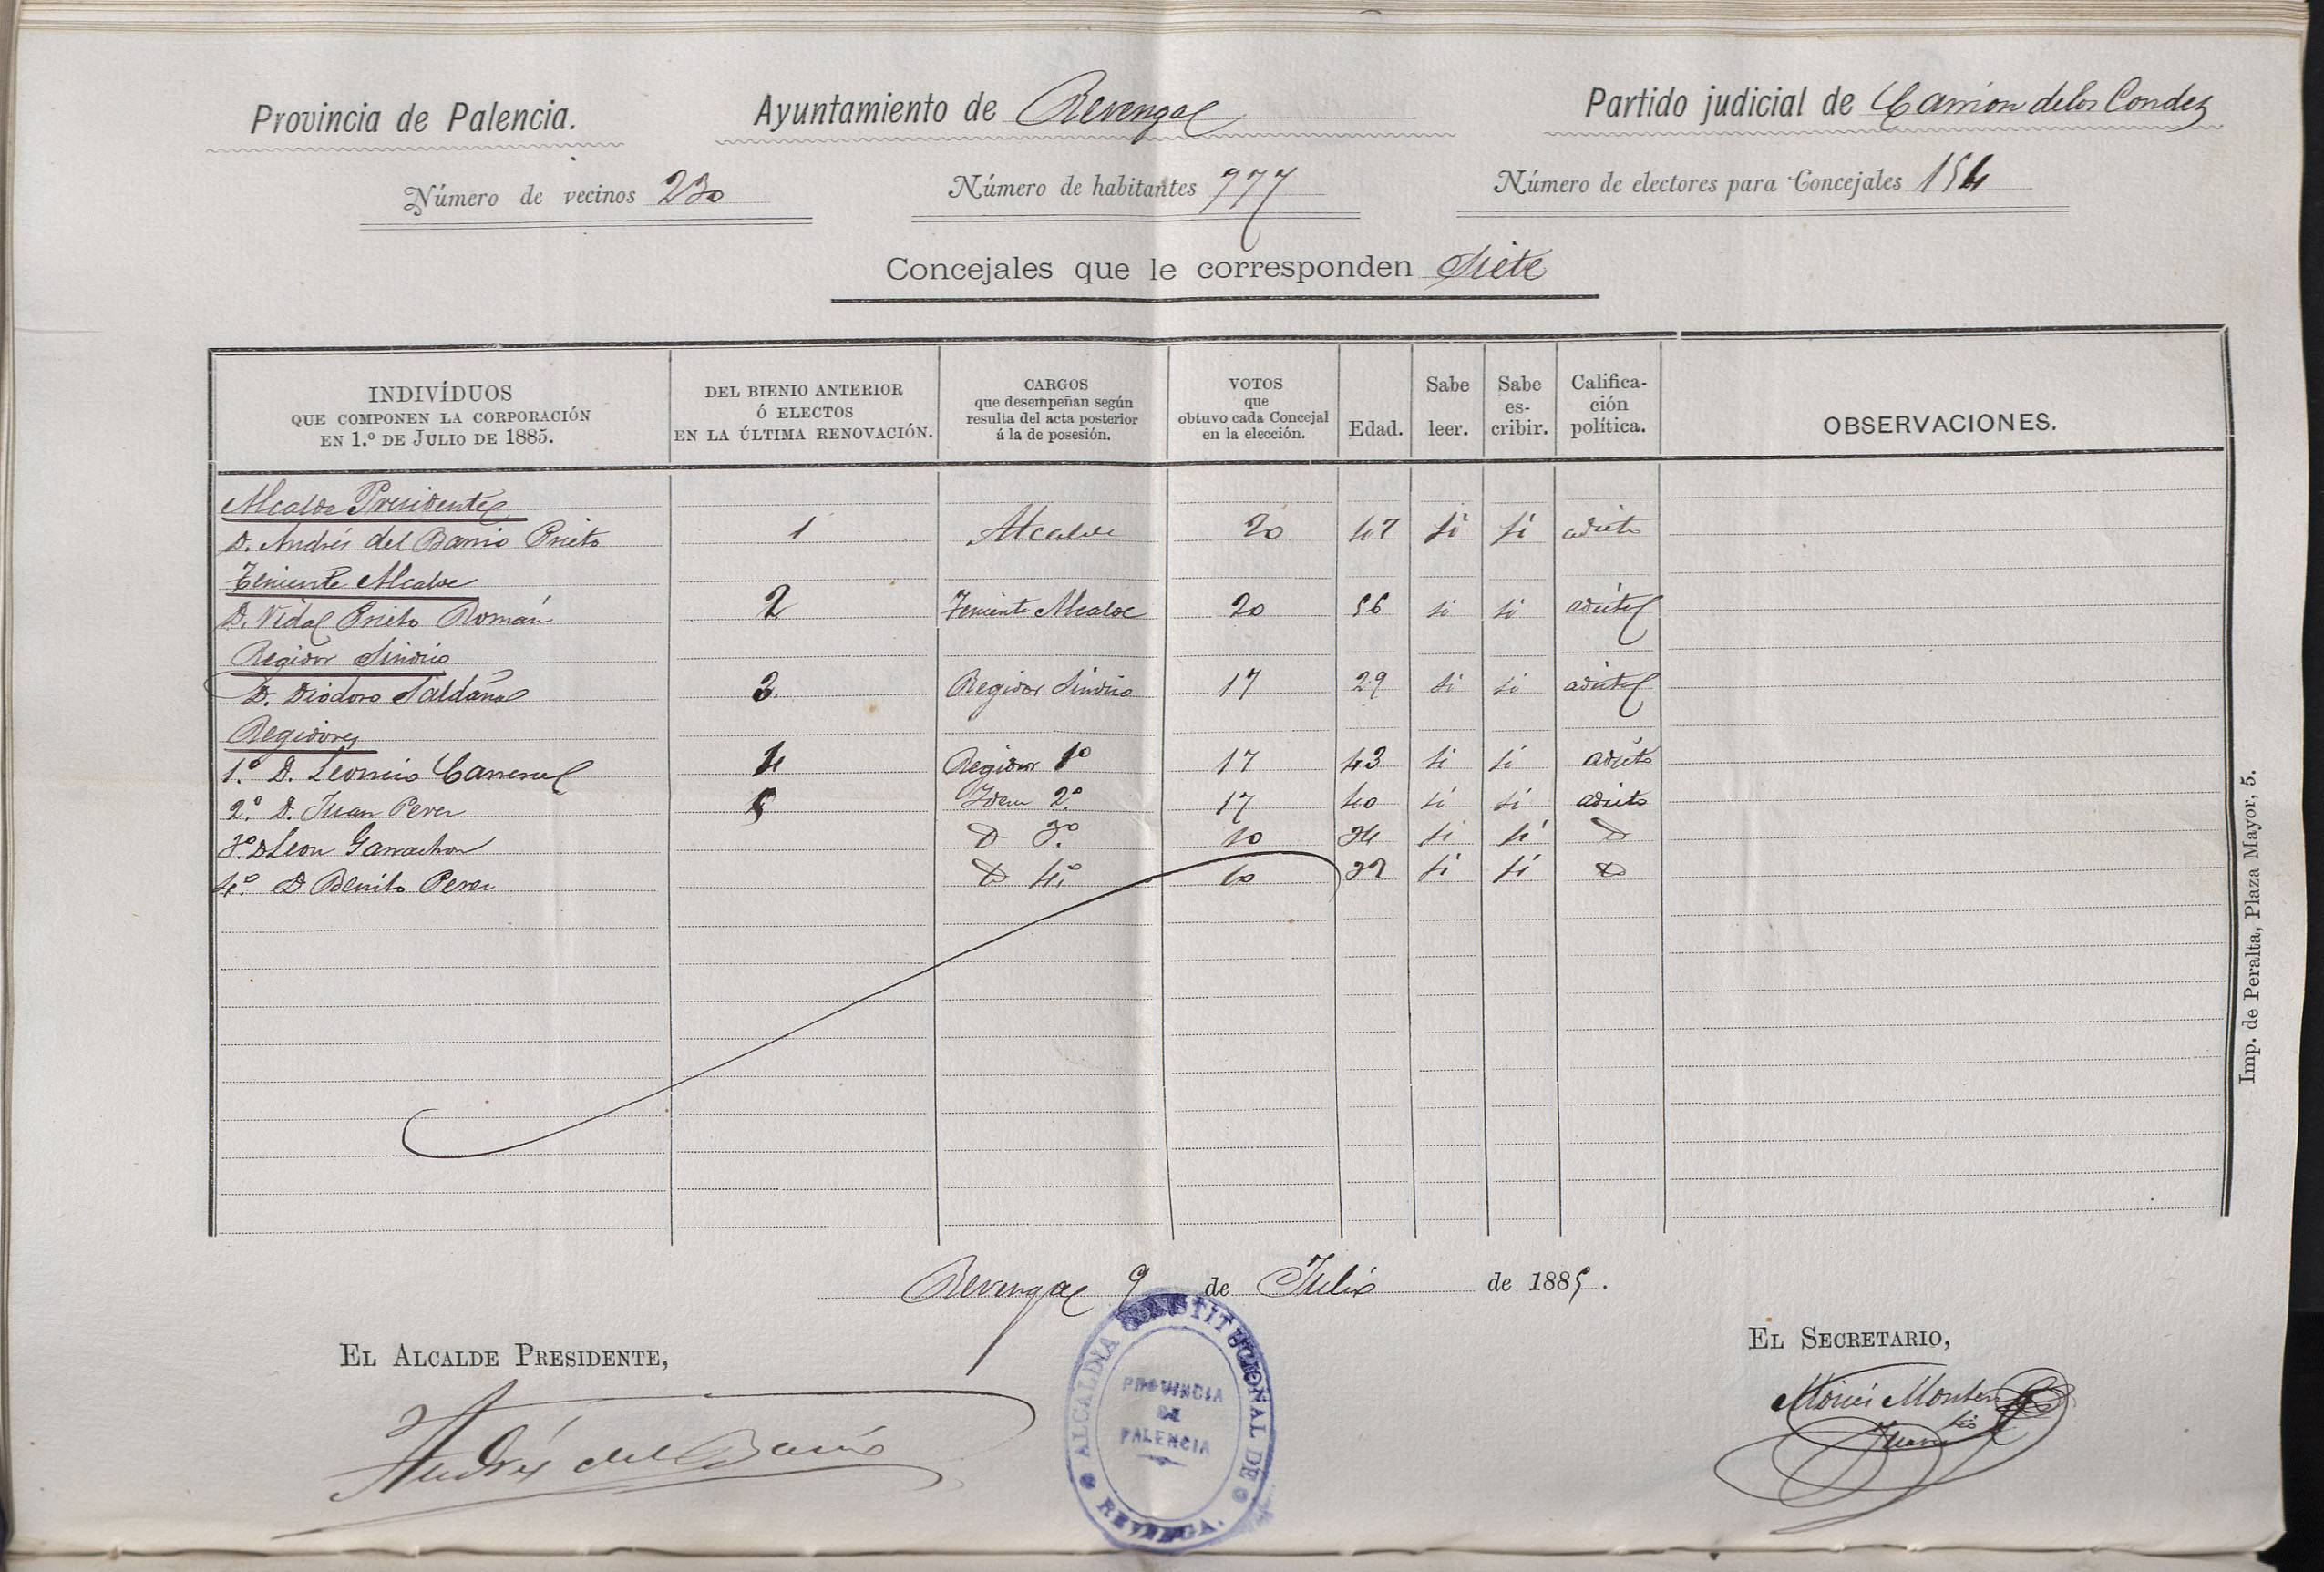 Provincia de Palencia. Ayuntamiento de Revenga Partido judicial de Carrion de los Condes
Número de vecinos 230 Número de habitantes 977 Número de electores para Concejales 154
Concejales que le corresponden Siete
INDIVÍDUOS QUE COMPONEN LA CORPORACIÓN EN 1.º DE JULIO DE 1885. DEL BIENIO ANTERIOR Ó ELECTOS EN LA ÚLTIMA RENOVACIÓN. CARGOS que desempeñan según resulta del acta posterior á la de posesión. VOTOS que obtuvo cada Concejal en la elección. Edad. Sabe leer. Sabe es-cribir. Califica-ción política. OBSERVACIONES.
Alcalde Presidente
D. Andrés del Barrio Prieto 1 Alcalde 20 47 si si adicto
Teniente Alcalde
D. Vidal Prieto Román 2 Teniente Alcalde 20 56 si si adicto
Regidor Sindico
D. Diodoro Saldaña 3. Regidor Sindico 17 29 si si adicto
Regidores
1.º D. Leoncio Carrene 4 Regidor 1º 17 43 si si adicto
2.º D. Juan Perez 5 Idem 2.º 17 40 si si adicto
3.º D Leon Garrachon D 3.º 10 34 si si D
4.º D Benito Perez D 4.º 10 32 si si D
Revenga 9 de Julio de 1885.
EL ALCALDE PRESIDENTE, EL SECRETARIO,
Andrés del Barrio Moises Montero
ALCALDIA CONSTITUCIONAL DE REVENGA.
PROVINCIA
DE
PALENCIA
Imp. de Peralta, Plaza Mayor, 5.